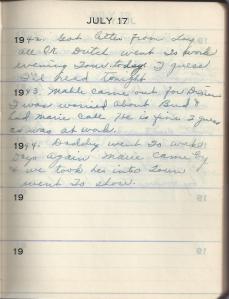 JULY 17
1942. Got letter from Lloy
all OK Dutch went to work
evening Tour today I guess
I'll head tonight
1943. Mable came out for Dinner
I was worried about Bud &
had Marie call He is fine I guess
as was at work.
1944. Daddy went to work
Days again Marie came by
& we took her into Town
went to show.
19
19